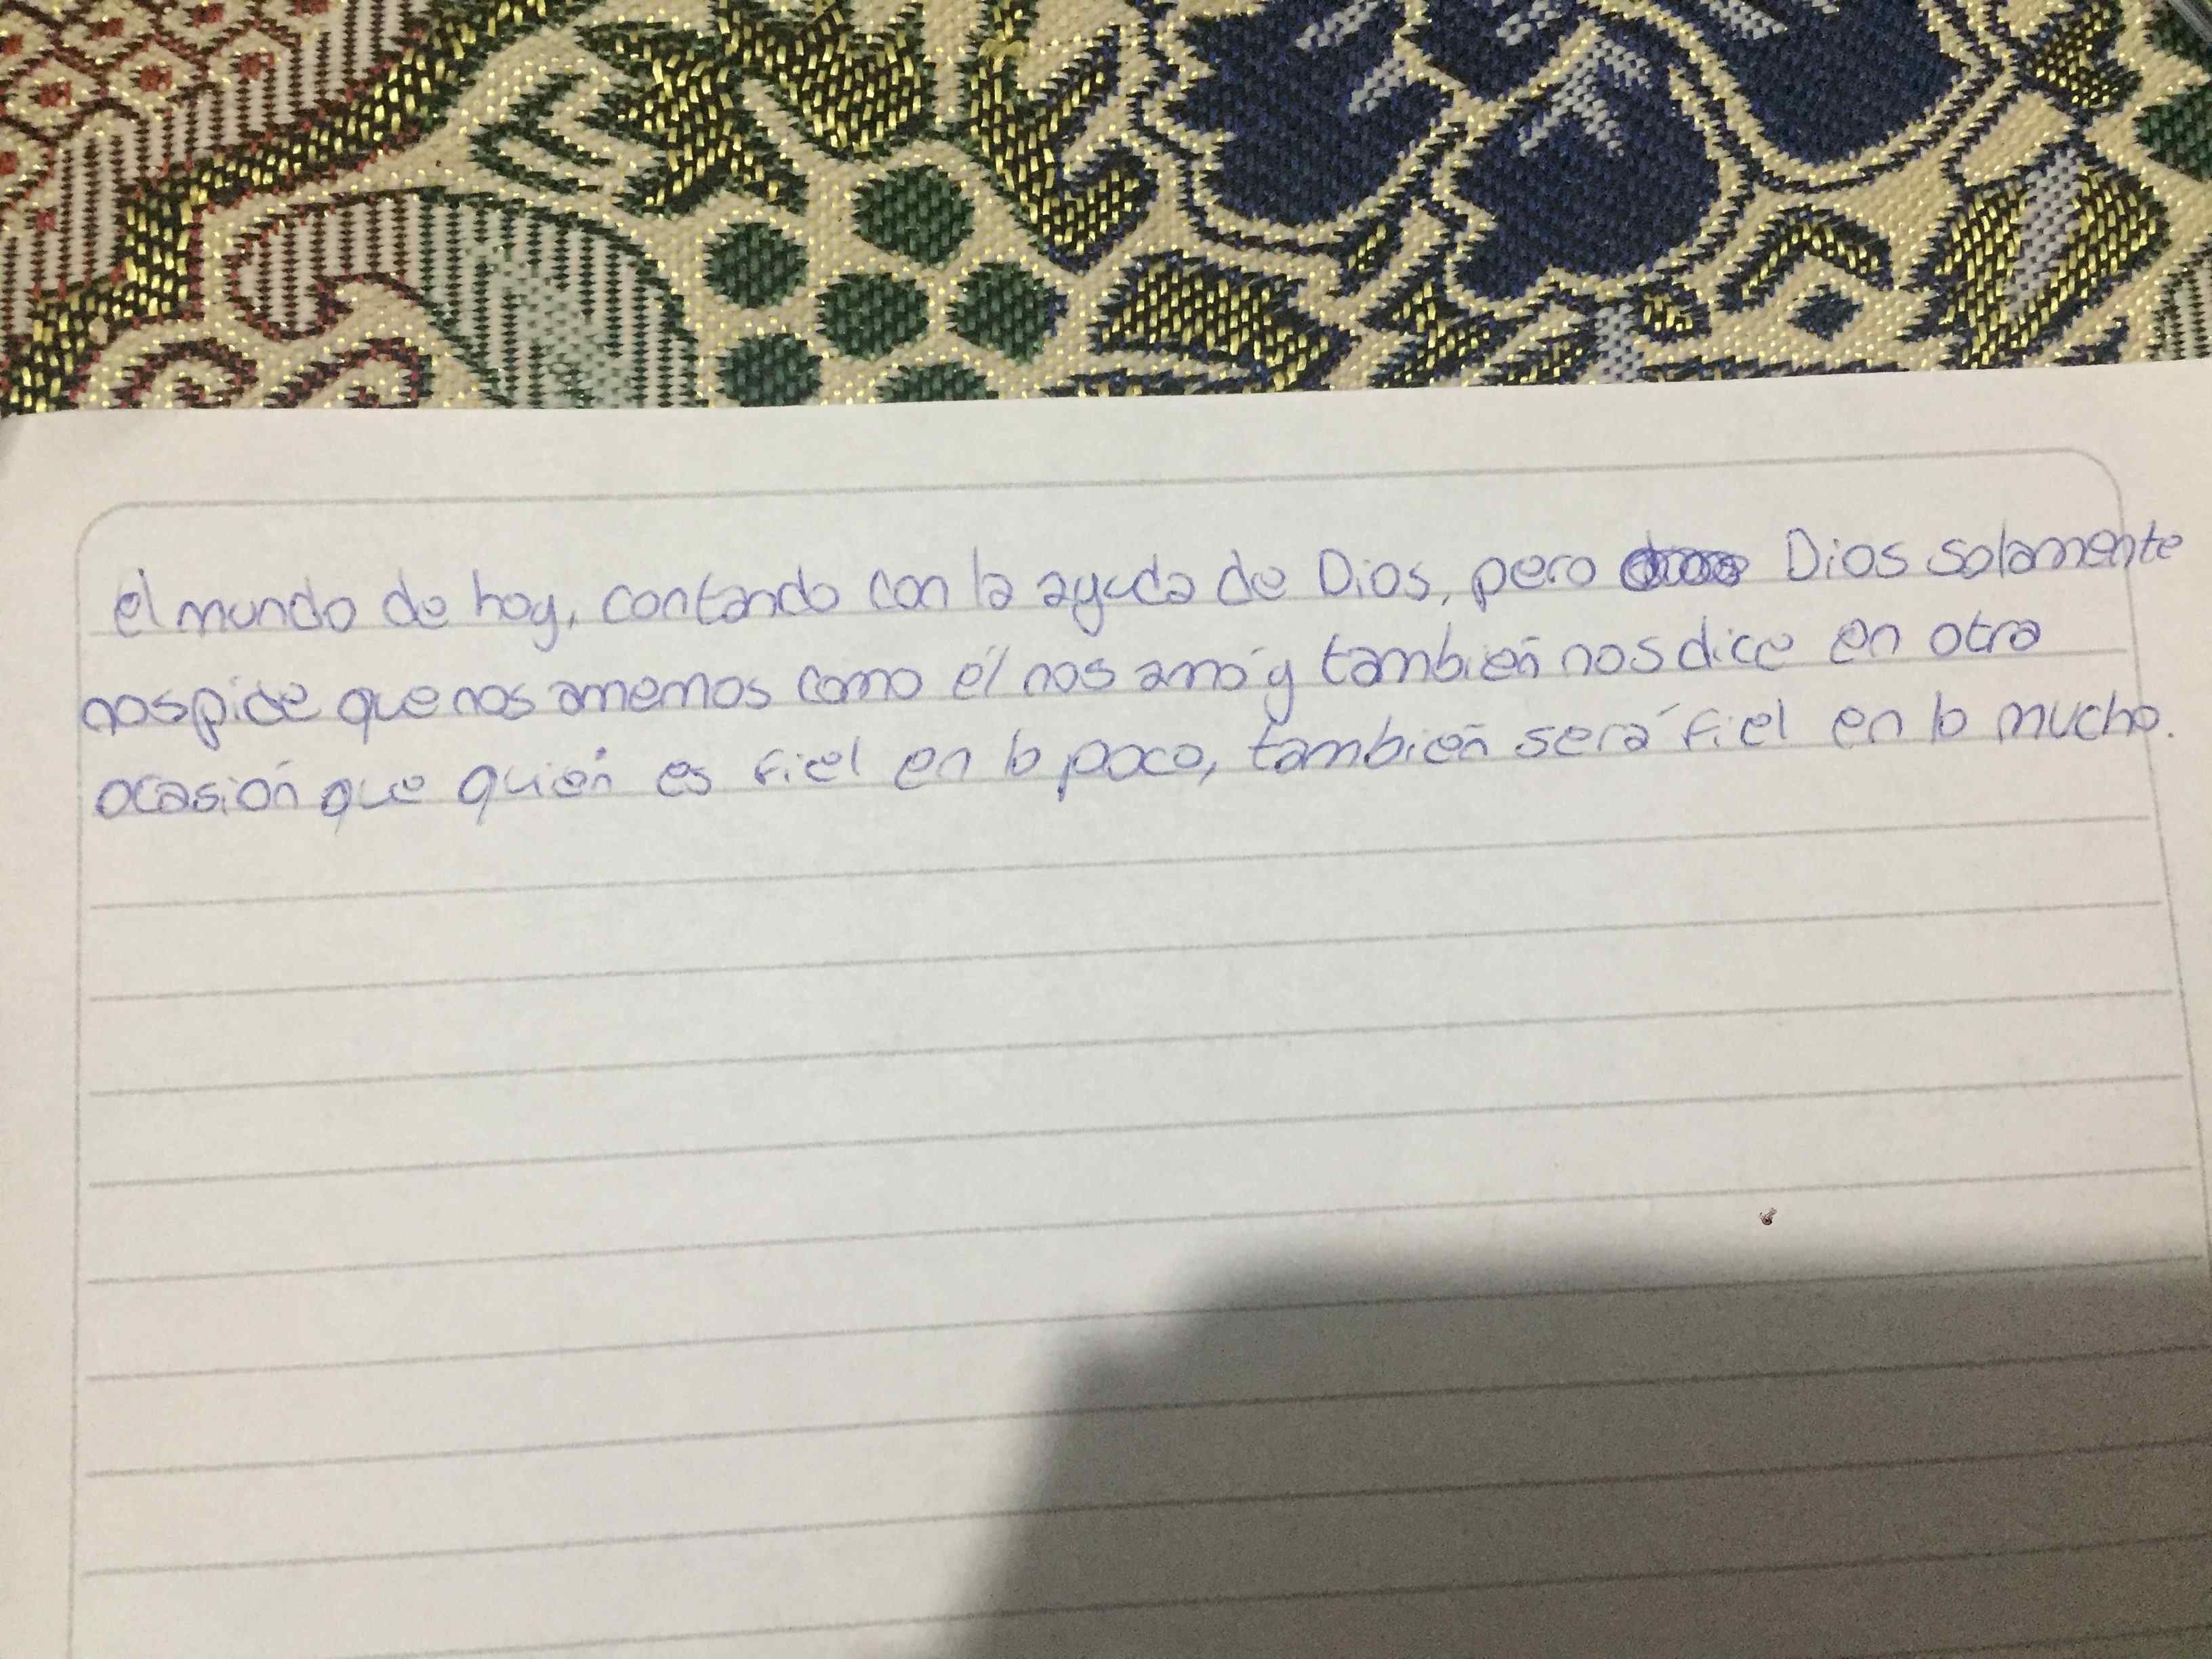 el mundo de hoy, contando con la ayuda de Dios, pero Dios solamente
nos pide que nos amemos como él nos amó y también nos dice en otra
ocasión que quién es fiel en lo poco, también será fiel en lo mucho.